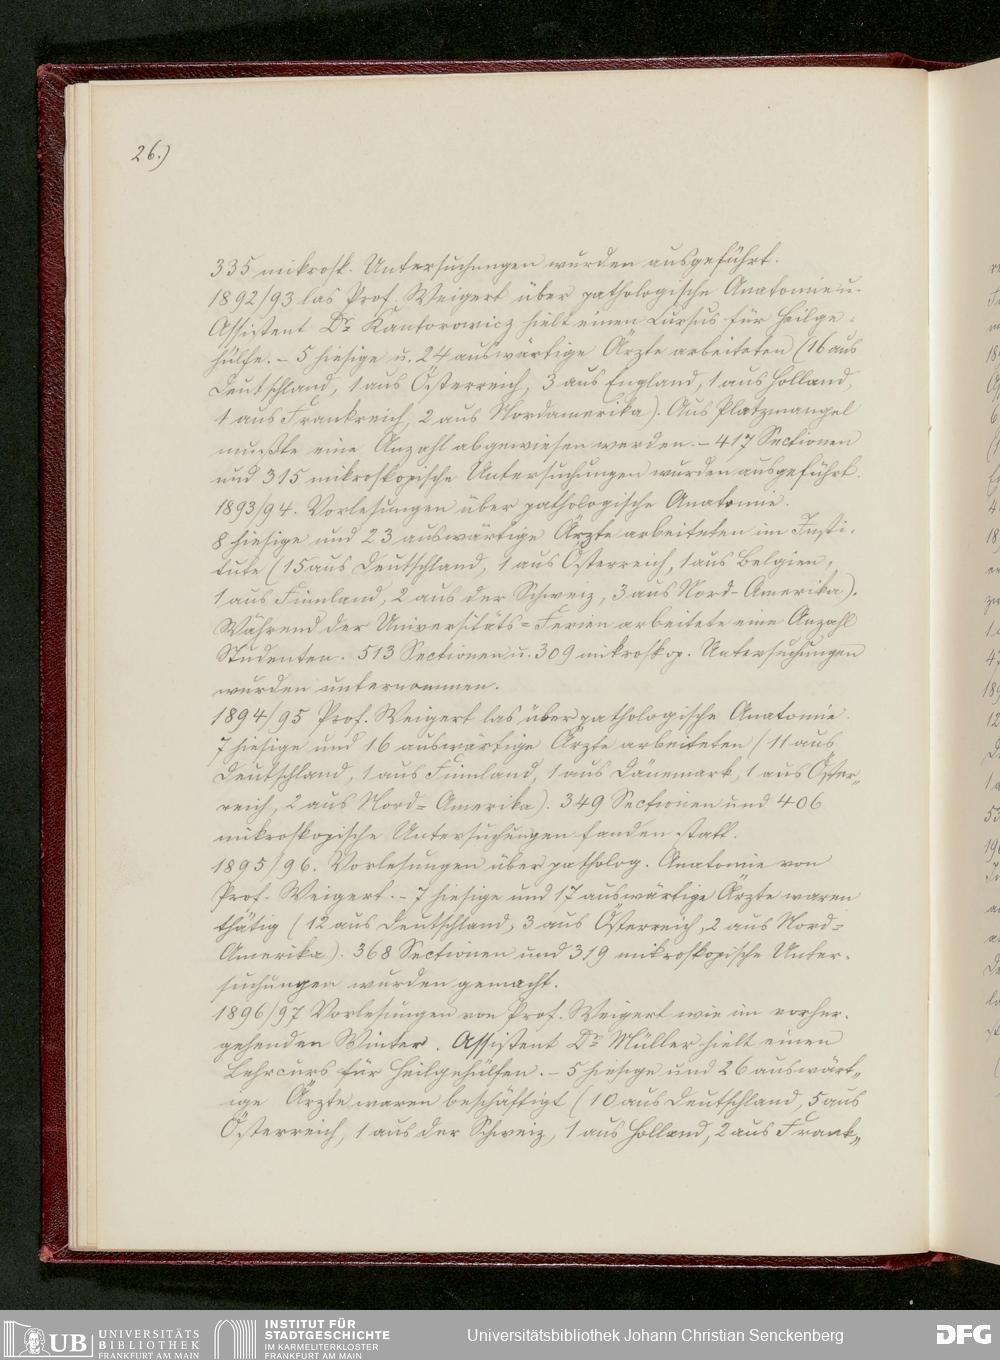 26.)
335 mikrosk. Untersuchungen wurden ausgeführt.
1892/93 las Prof. Weigert über pathologische Anatomie u.
Assistent Dr. Kantorowicz hielt einen Cursus für Heilge-
hülfe. – 5 hiesige u. 24 auswärtige Ärzte arbeiteten (16 aus
Deutschland, 1 aus Österreich, 3 aus England, 1 aus Holland,
1 aus Frankreich, 2 aus Nordamerika). Aus Platzmangel
mußte eine Anzahl abgewiesen werden. – 417 Sectionen
und 315 mikroskopische Untersuchungen wurden ausgeführt.
1893/94. Vorlesungen über pathologische Anatomie.
8 hiesige und 23 auswärtige Ärzte arbeiteten im Insti-
tute (15 aus Deutschland, 1 aus Österreich, 1 aus Belgien,
1 aus Finnland, 2 aus der Schweiz, 3 aus Nord-Amerika).
Während der Universitäts-Ferien arbeitete eine Anzahl
Studenten. 513 Sectionen u. 309 mikroskop. Untersuchungen
wurden unternommen.
1894/95 Prof. Weigert las über pathologische Anatomie.
7 hiesige und 16 auswärtige Ärzte arbeiteten (11 aus
Deutschland, 1 aus Finnland, 1 aus Dänemark, 1 aus Öster„
reich, 2 aus Nord-Amerika). 349 Sectionen und 406
mikroskopische Untersuchungen fanden statt.
1895/96. Vorlesungen über patholog. Anatomie von
Prof. Weigert. – 7 hiesige und 17 auswärtige Ärzte waren
thätig (12 aus Deutschland, 3 aus Österreich, 2 aus Nord-
Amerika). 368 Sectionen und 319 mikroskopische Unter-
suchungen wurden gemacht.
1896/97 Vorlesungen von Prof. Weigert wie im vorher-
gehenden Winter. Assistent Dr. Müller hielt einen
Lehrcurs für Heilgehülfen. – 5 hiesige und 26 auswärt„
ige Ärzte waren beschäftigt (10 aus Deutschland, 5 aus
Österreich, 1 aus der Schweiz, 1 aus Holland, 2 aus Frank„
UB UNIVERSITÄTS
BIBLIOTHEK
FRANKFURT AM MAIN
INSTITUT FÜR
STADTGESCHICHTE
IM KARMELITERKLOSTER
FRANKFURT AM MAIN
Universitätsbibliothek Johann Christian Senckenberg
DFG